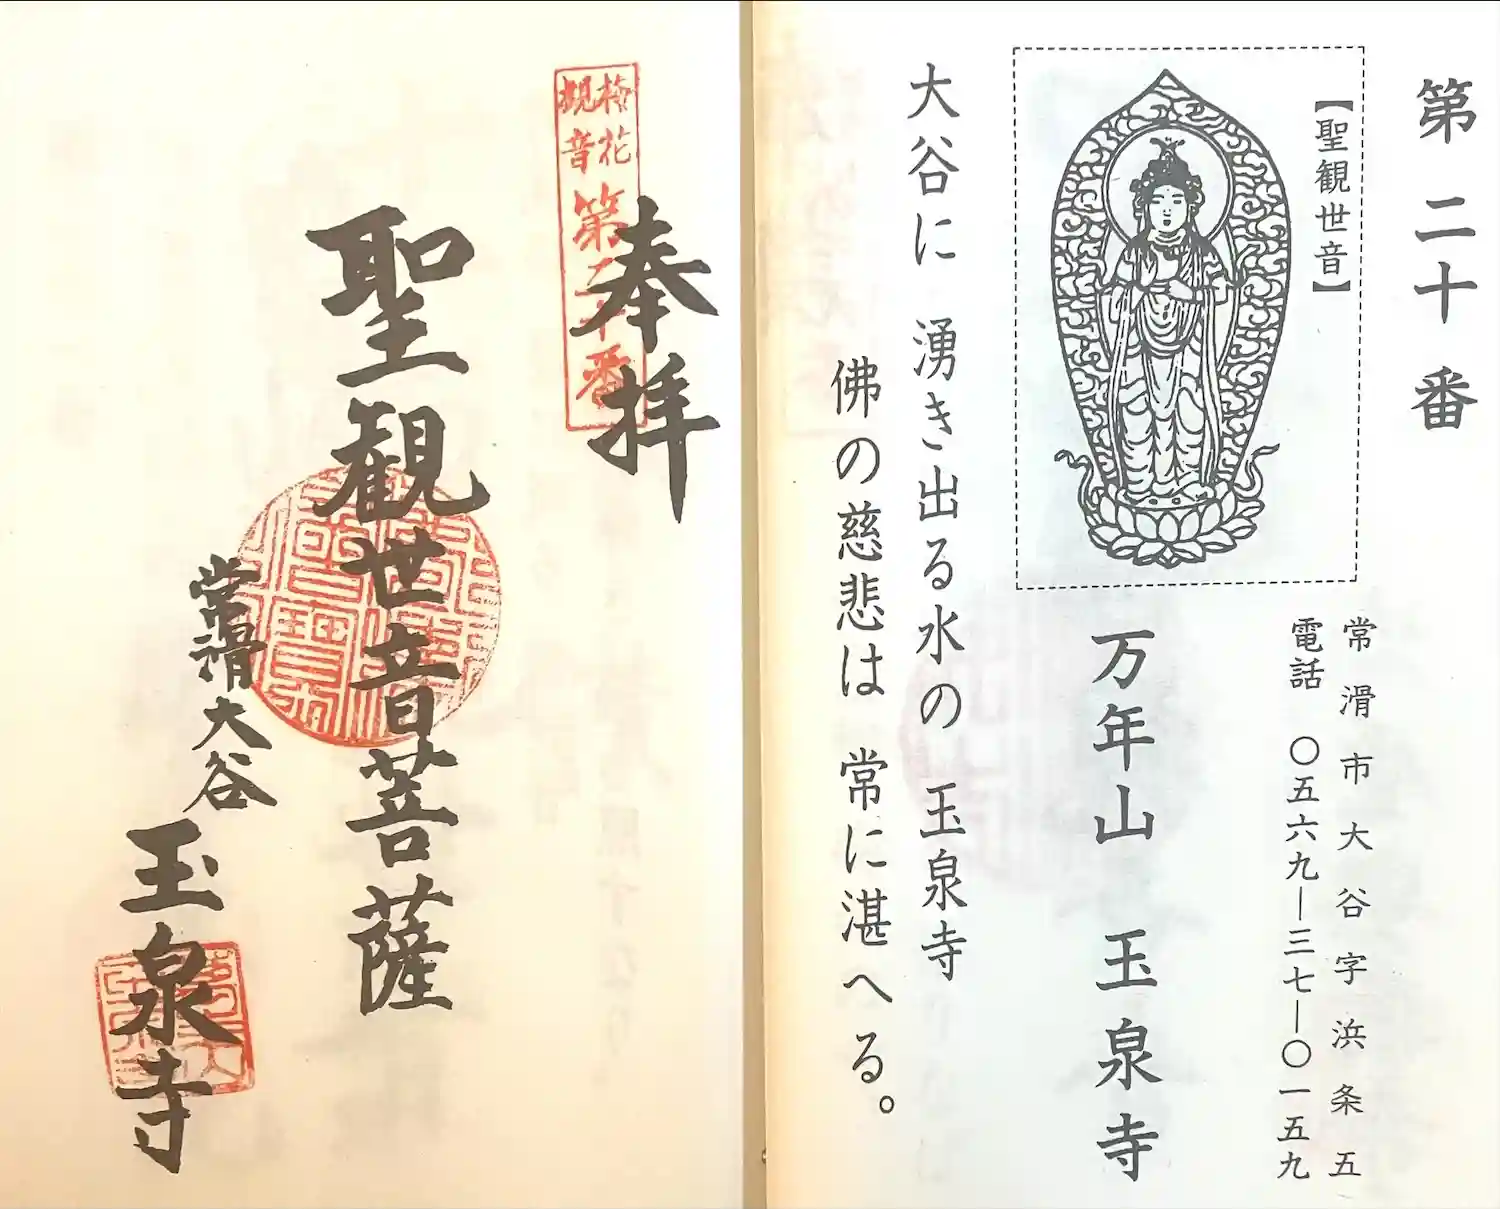 第二十番
【聖観世音】
常滑市大谷字浜条五
電話 〇五六九―三七―〇一五九
万年山 玉泉寺
大谷に 湧き出る水の 玉泉寺
佛の慈悲は 常に湛へる。
梅花
観音
第二十番
奉拝
聖観世音菩薩
常滑大谷
玉泉寺